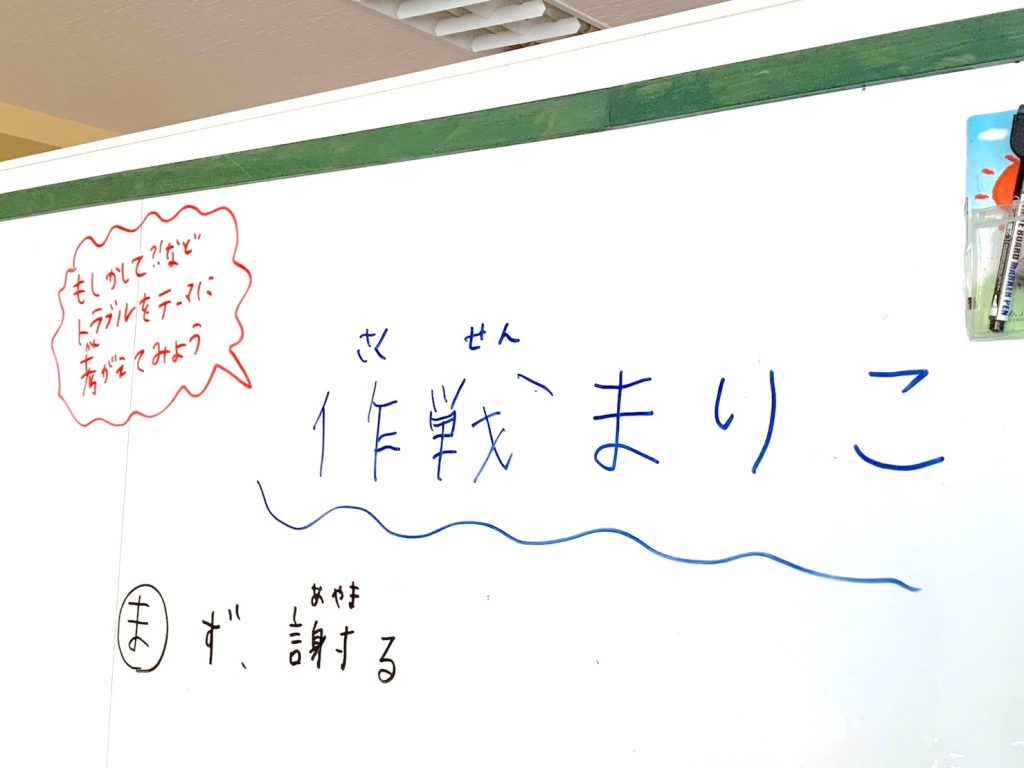 もしかして?!など
トラブルをテーマに
かん
考がえてみよう
さく せん
作戦 まりこ
ま ず、謝する
あやま
BOARD MARKER PEN